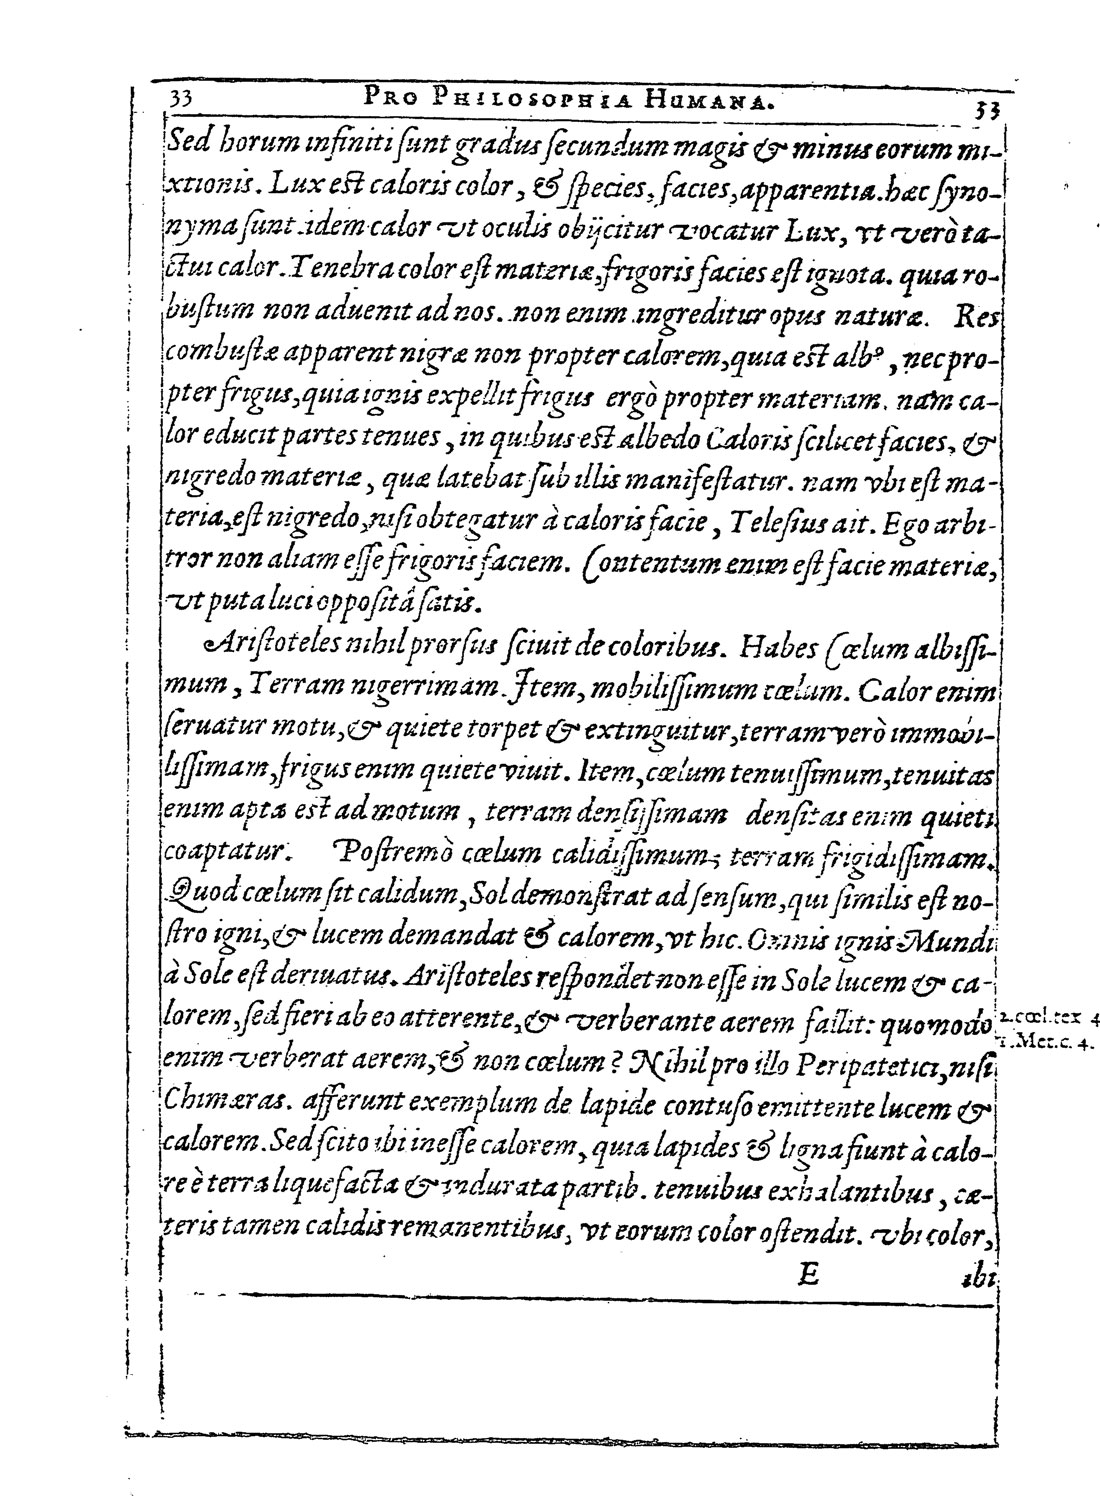 33 PRO PHILOSOPHIA HUMANA. 33
Sed horum infiniti ſunt gradus ſecundum magis & minus eorum mi-
xtionis. Lux eſt caloris color, & ſpecies, facies, apparentia. hæc ſyno-
nyma ſunt. idem calor vt oculis obijcitur vocatur Lux, vt verò ta-
ctui calor. Tenebra color eſt materiæ, frigoris facies eſt ignota. quia ro-
buſtum non aduenit ad nos. non enim ingreditur opus naturæ. Res
combuſtæ apparent nigræ non propter calorem, quia eſt albꝰ, nec pro-
pter frigus, quia ignis expellit frigus ergò propter materiam. nam ca-
lor educit partes tenues, in quibus eſt albedo Caloris ſcilicet facies, &
nigredo materiæ, quæ latebat ſub illis manifeſtatur. nam vbi eſt ma-
teria, eſt nigredo, niſi obtegatur à caloris facie, Teleſius ait. Ego arbi-
tror non aliam eſſe frigoris faciem. Contentum enim eſt facie materiæ,
vt puta luci oppoſitâ ſatis.
Ariſtoteles nihil prorſus ſciuit de coloribus. Habes Cœlum albiſſi-
mum, Terram nigerrimam. Item, mobiliſſimum cœlum. Calor enim
ſeruatur motu, & quiete torpet & extinguitur, terram verò immobi-
liſſimam, frigus enim quiete viuit. Item, cœlum tenuiſſimum, tenuitas
enim apta eſt ad motum, terram denſiſſimam denſitas enim quieti
coaptatur. Poſtremò cœlum calidiſſimum, terram frigidiſſimam.
Quod cœlum ſit calidum, Sol demonſtrat ad ſenſum, qui ſimilis eſt no-
ſtro igni, & lucem demandat & calorem, vt hic. Omnis ignis Mundi
à Sole eſt deriuatus. Ariſtoteles reſpondet non eſſe in Sole lucem & ca-
lorem, ſed fieri ab eo atterente, & verberante aerem fallit: quomodo
2. cœl. tex 4
1. Met. c. 4.
enim verberat aerem, & non cœlum? Nihil pro illo Peripatetici, niſi
Chimæras. afferunt exemplum de lapide contuſo emittente lucem &
calorem. Sed ſcito ibi ineſſe calorem, quia lapides & ligna fiunt à calo-
re è terra liquefacta & indurata partib. tenuibus exhalantibus, cæ-
teris tamen calidis remanentibus, vt eorum color oſtendit. vbi color,
E ibi